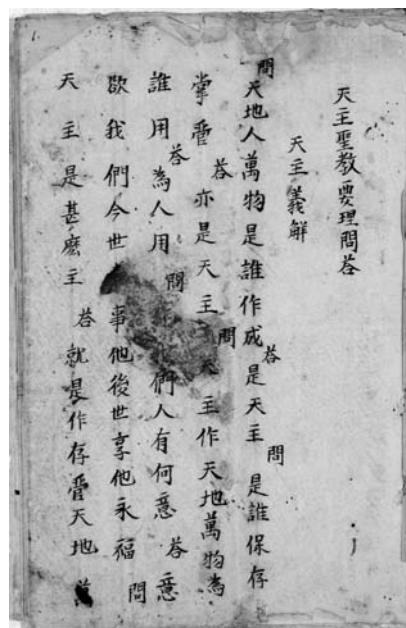 天主聖教要理問荅
天主義解
問天地人萬物是誰作成荅是天主問是誰保存
掌管荅亦是天主問天主作天地萬物為
誰用荅為人用問們人有何意荅意
欲我們今世事他後世享他永福問
天主是甚麽主荅就是作存管天地萬